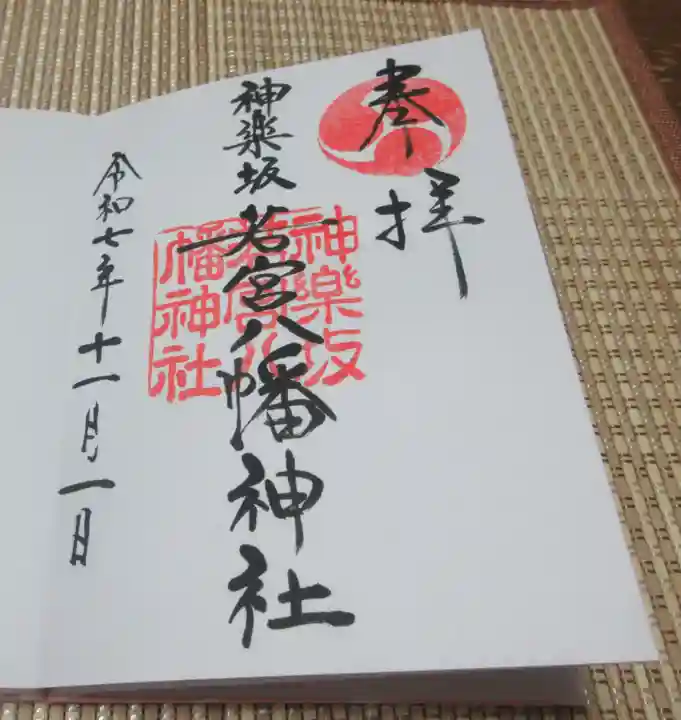 奉拝
神楽坂若宮八幡神社
神樂坂
若宮八
幡神社
令和七年十一月一日